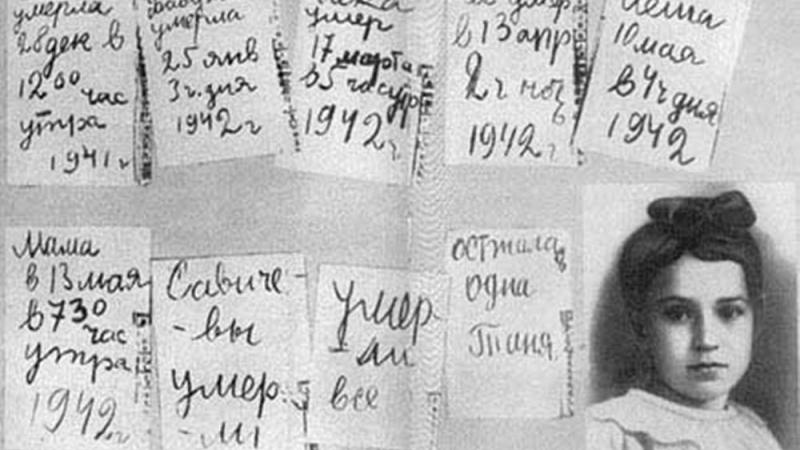 умерла
28 дек в
12 00 час
утра
1941 г
умерла
25 янв
3 ч. дня
1942 г
умер
17 марта
в 5 час утр
1942 г
в 13 апр
2 ч ноч
1942 г
Леша
10 мая
в 4 ч дня
1942
Мама
в 13 мая
в 7 30
час
утра
1942 г
Савиче-
-вы
умер.
-ли
умер
-ли
все
осталась
одна
Таня